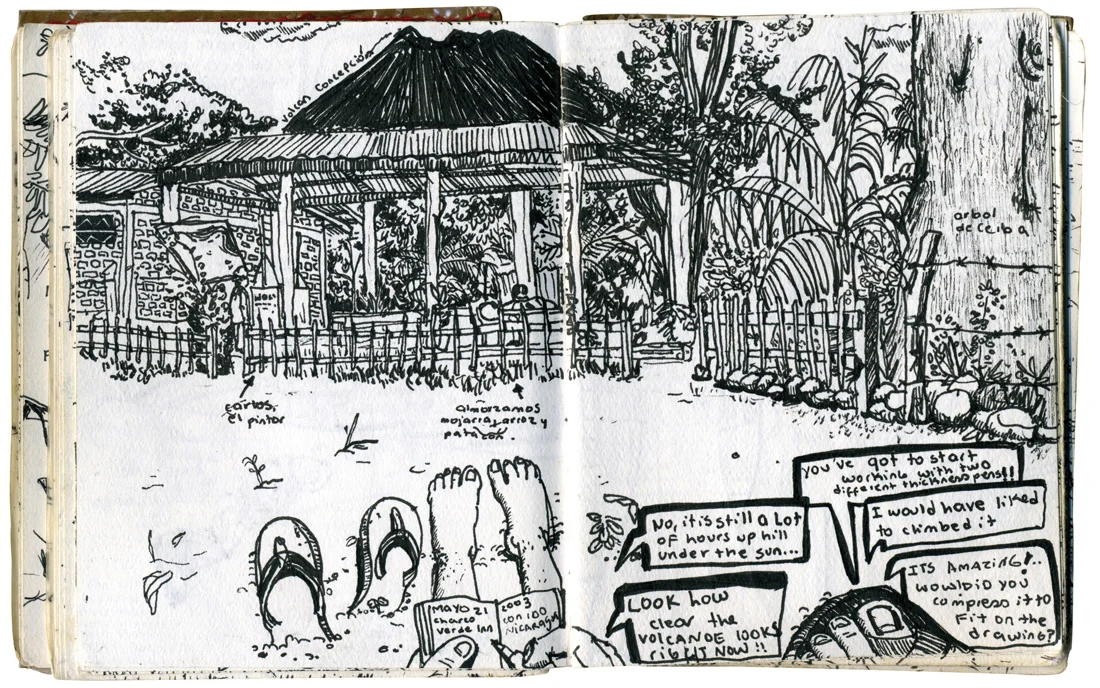 Volcan Concepción
arbol
de ceiba
carlos,
el pintor
almorzamos
mojarra, arroz y
patacón.
You've got to start
working with two
different thickness pens!!
I would have liked
to climbed it
No, it is still a Lot
of hours up hill
under the sun...
ITS AMAZING!..
would
compress it to
Fit on the
drawing?
LOOK how
clear the
VOLCANOE LOOKS
NOW!!
MAYO 21
charco
verde Inn
2003
NICARAGUA